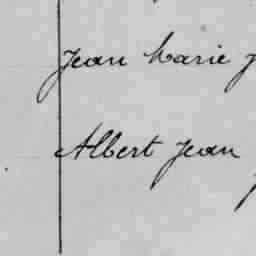 Jean Marie J
Albert Jean